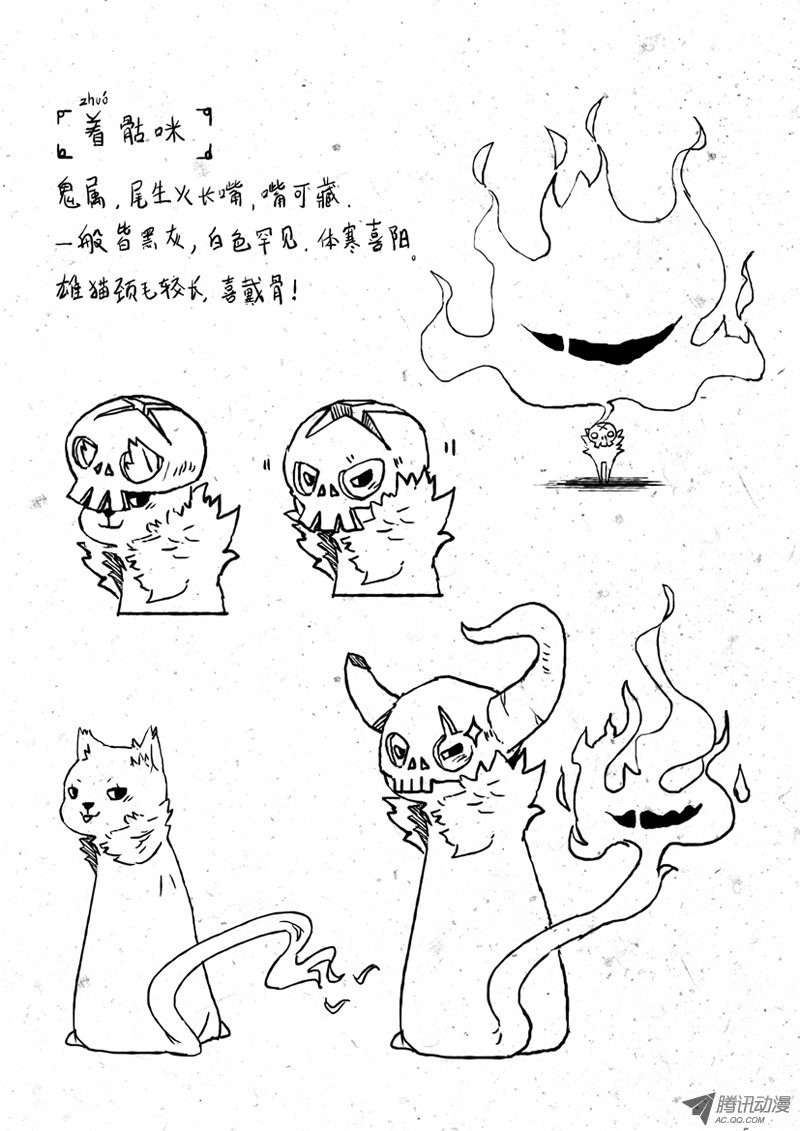 zhuó
着骷咪
鬼属，尾生火长嘴，嘴可藏.
一般皆黑灰，白色罕见.体寒喜阳。
雄猫颈毛较长，喜戴骨！
腾讯动漫
AC.QQ.COM